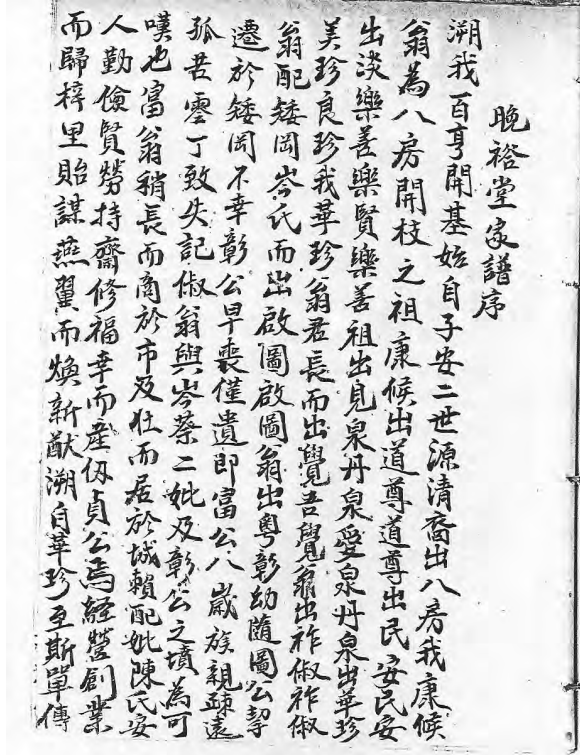 晚裕堂家譜序
溯我百亨開基始自子安二世源清裔出八房我康候
翁為八房開枝之祖康候出道尊道尊出民安民安
出淡樂善樂賢樂善祖出見泉丹泉愛泉丹泉出華珍
美珍良珍我華珍翁君長而出覺吾覺翁出祚俶祚俶
翁配矮岡岑氏而出啟圖啟圖翁出粵彰幼隨圖公挈
遷於矮岡不幸彰公早喪僅遺郎富公八歲族親疎遠
孤苦零丁致失記俶翁與岑蔡二妣及彰公之墳為可
嘆也富翁稍長而商於市及壯而居於城賴配妣陳氏安
人勤儉賢勞持齋修福幸而產仭貞公焉経營創業
而歸梓里貽謀燕翼而煥新猷溯自華珍至斯單傳